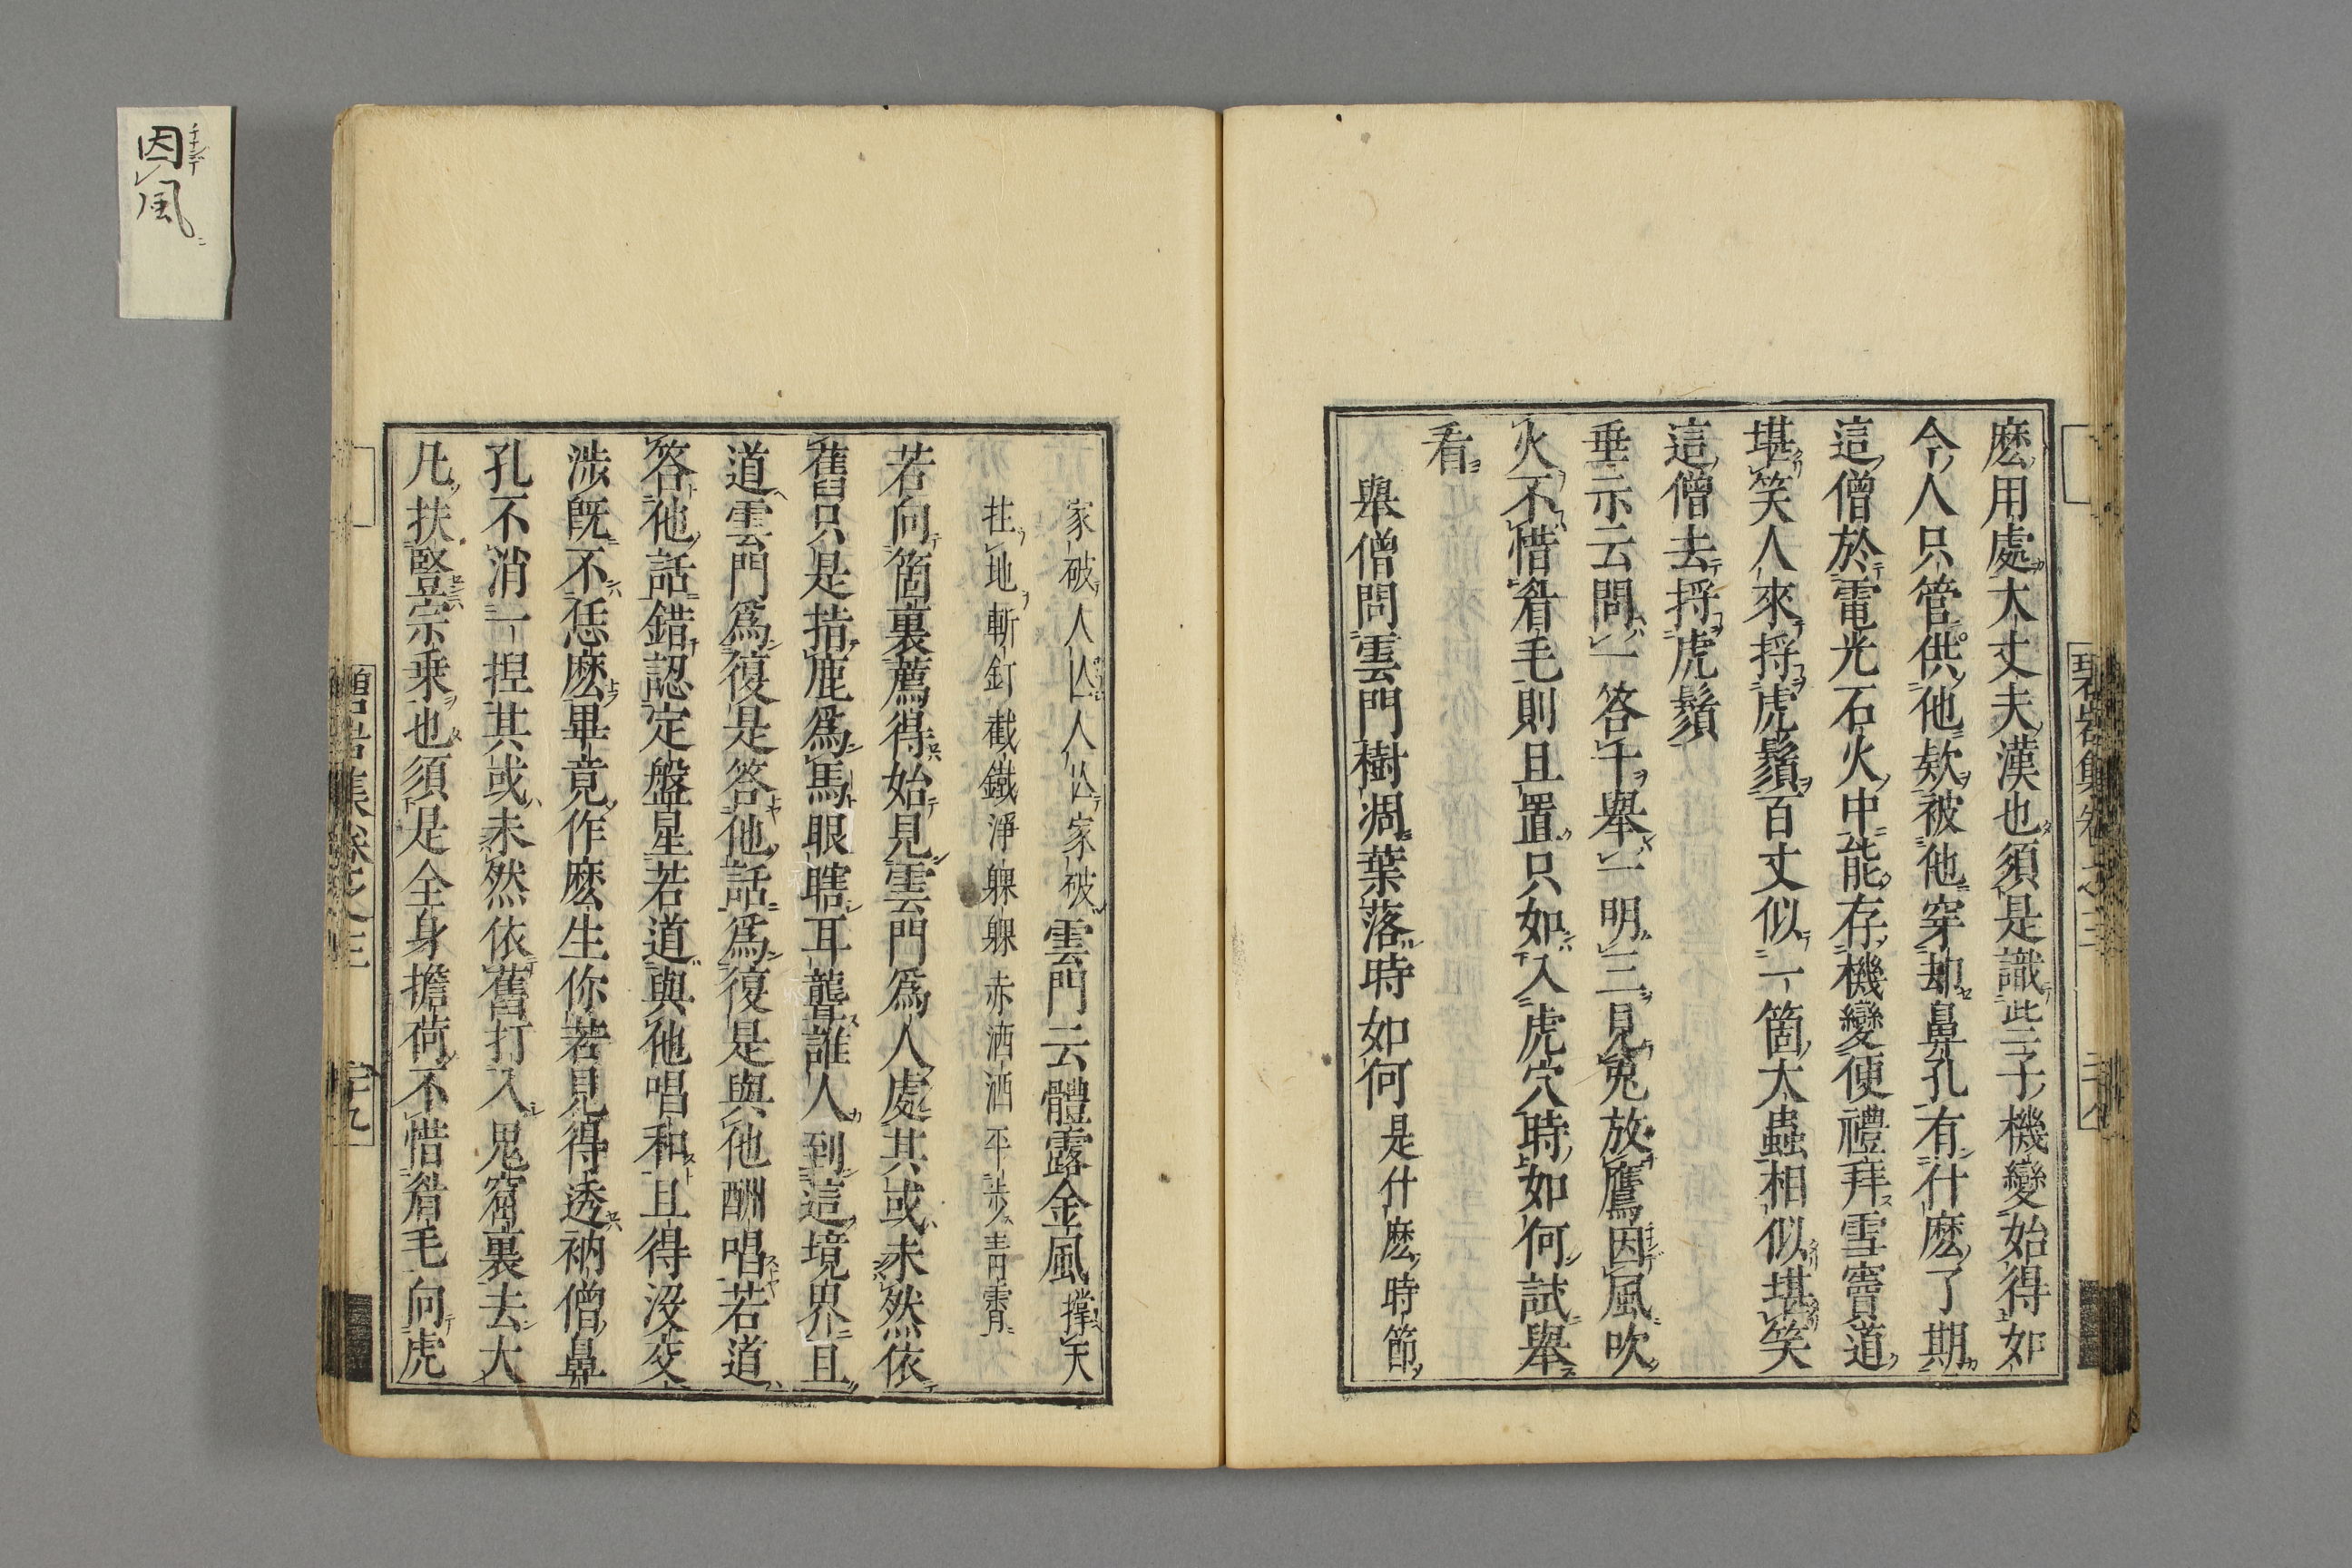 麽用處大丈夫漢也須是識些子機變始得如
今人只管供他欵被他穿却鼻孔有什麽了期
這僧於電光石火中能存機變便禮拜雪竇道
堪笑人來捋虎鬚百丈似一箇大蟲相似堪笑
這僧去捋虎鬚
垂示云問一答十舉一明三見兎放鷹因風吹
火不惜眉毛則且置只如入虎穴時如何試舉
看
舉僧問雲門樹凋葉落時如何是什麽時節
家破人亡人亡家破雲門云體露金風撐天
拄地斬釘截鐵淨躶躶赤洒洒平步青霄
若向箇裏薦得始見雲門爲人處其或未然依
舊只是指鹿爲馬眼瞎耳聾誰人到這境界且
道雲門爲復是答他話爲復是與他酬唱若道
答他話錯認定盤星若道與他唱和且得沒交
涉既不恁麽畢竟作麽生你若見得透衲僧鼻
孔不消一捏其或未然依舊打入鬼窟裏去大
凡扶竪宗乘也須是全身擔荷不惜眉毛向虎
碧岩集卷之三
二十九
因風